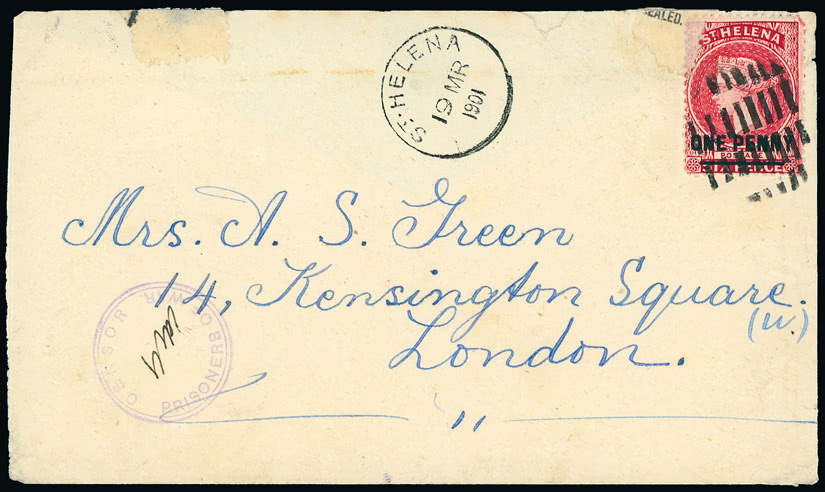 SEALED.
ST. HELENA
19 MR
1901
ST. HELENA
ONE PENNY
POSTAGE
SIXPENCE
Mrs. A. S. Green
14, Kensington Square.
(W.)
London.
"
CETSOR
PRISONERB OF WAR